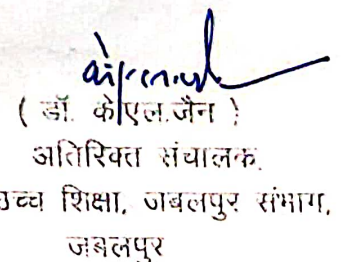 ( डॉ. के.एल.जैन )
अतिरिक्त संचालक,
उच्च शिक्षा, जबलपुर संभाग,
जबलपुर